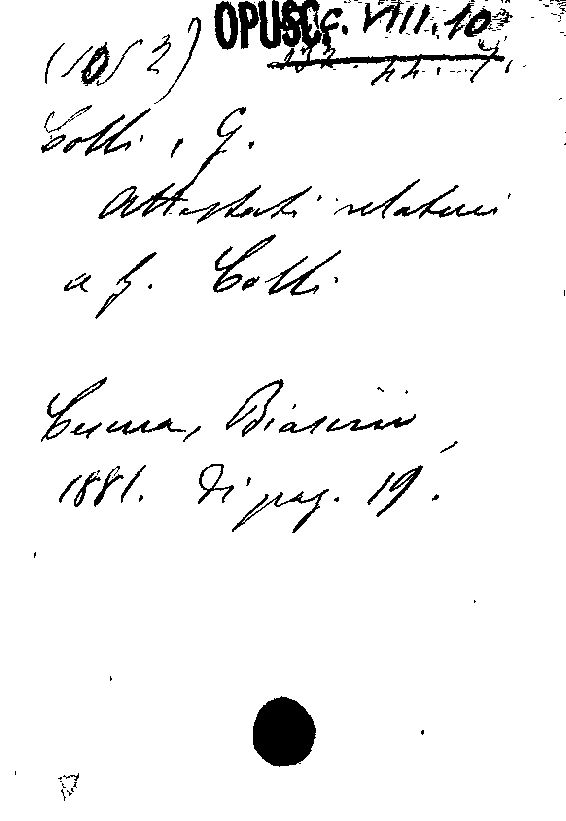 OPUSC. C. VIII. 10
(1052)
Colli, G.
Attestati relativi
a G. Colli.
Cesena, Biasini,
1881. Di pag. 19.